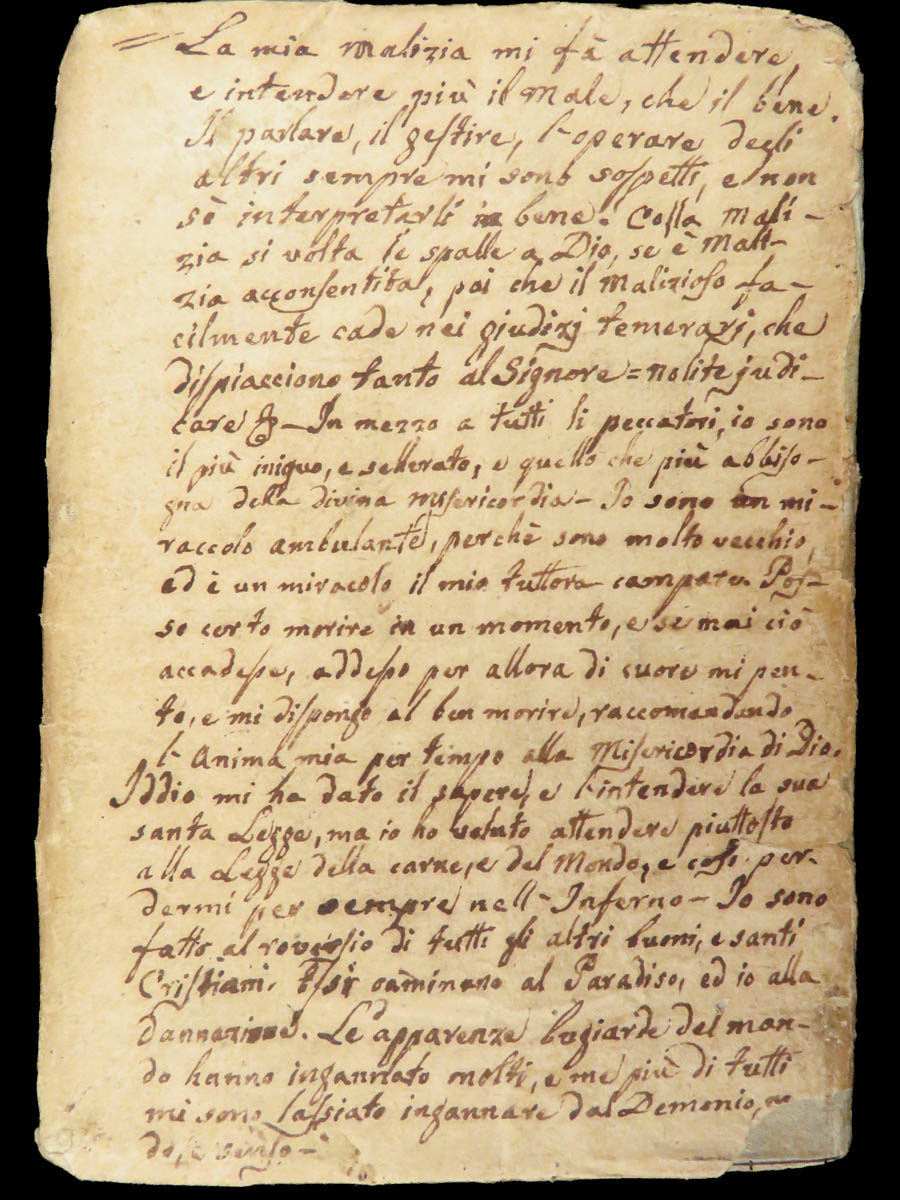 = La mia malizia mi fà attendere,
e intendere più il male, che il bene.
Il parlare, il gestire, l'operare degli
altri sempre mi sono sospetti, e non
sò interpretarli in bene. Colla mali-
zia si volta le spalle a Dio, se è mali-
zia acconsentita, poi che il malizioso fa-
cilmente cade nei giudizj temerarj, che
dispiacciono tanto al Signore = nolite judi-
care &. - In mezzo a tutti li peccatori, io sono
il più iniquo, e sellerato, e quello che più abbiso-
gna della divina misericordia - Io sono un mi-
raccolo ambulante, perchè sono molto vecchio,
ed è un miracolo il mio tuttora campare. Pos-
so certo morire in un momento, e se mai ciò
accadesse, addesso per allora di cuore mi pen-
to, e mi dispongo al ben morire, raccomandando
l'Anima mia per tempo alla Misericordia di Dio.
Iddio mi ha dato il sapere, e l'intendere la sua
santa Legge, ma io ho voluto attendere piuttosto
alla Legge della carne, e del Mondo, e così per-
dermi per sempre nell'Inferno - Io sono
fatto al roversio di tutti gli altri buoni, e santi
Cristiani. Essi caminano al Paradiso, ed io alla
dannazione. Le apparenze bugiarde del mon-
do hanno ingannato molti, e me più di tutti
mi sono lassiato ingannare dal Demonio,
do, e senso -